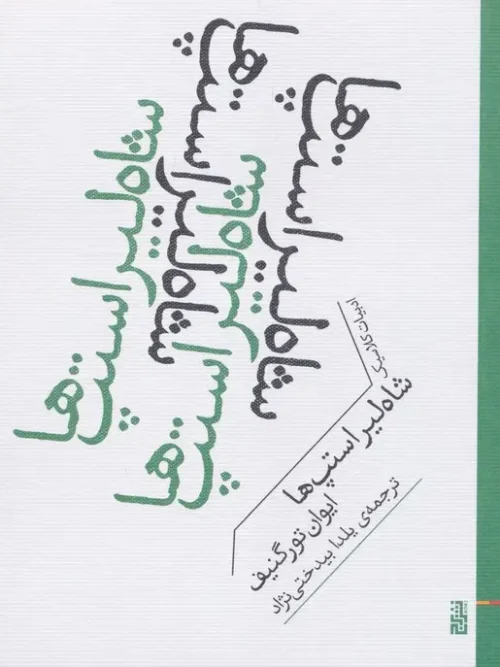 شاه‌لیر استپ‌ها
شاه‌لیر استپ‌ها
شاه‌لیر استپ‌ها
شاه‌لیر استپ‌ها
شاه‌لیر استپ‌ها
ادبیات کلاسیک
شاه‌لیر استپ‌ها
ایوان تورگنیف
ترجمه‌ی یلدا بیدختی‌نژاد